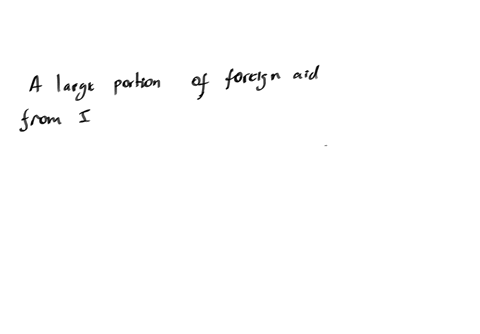 A large portion of foreign aid
from I